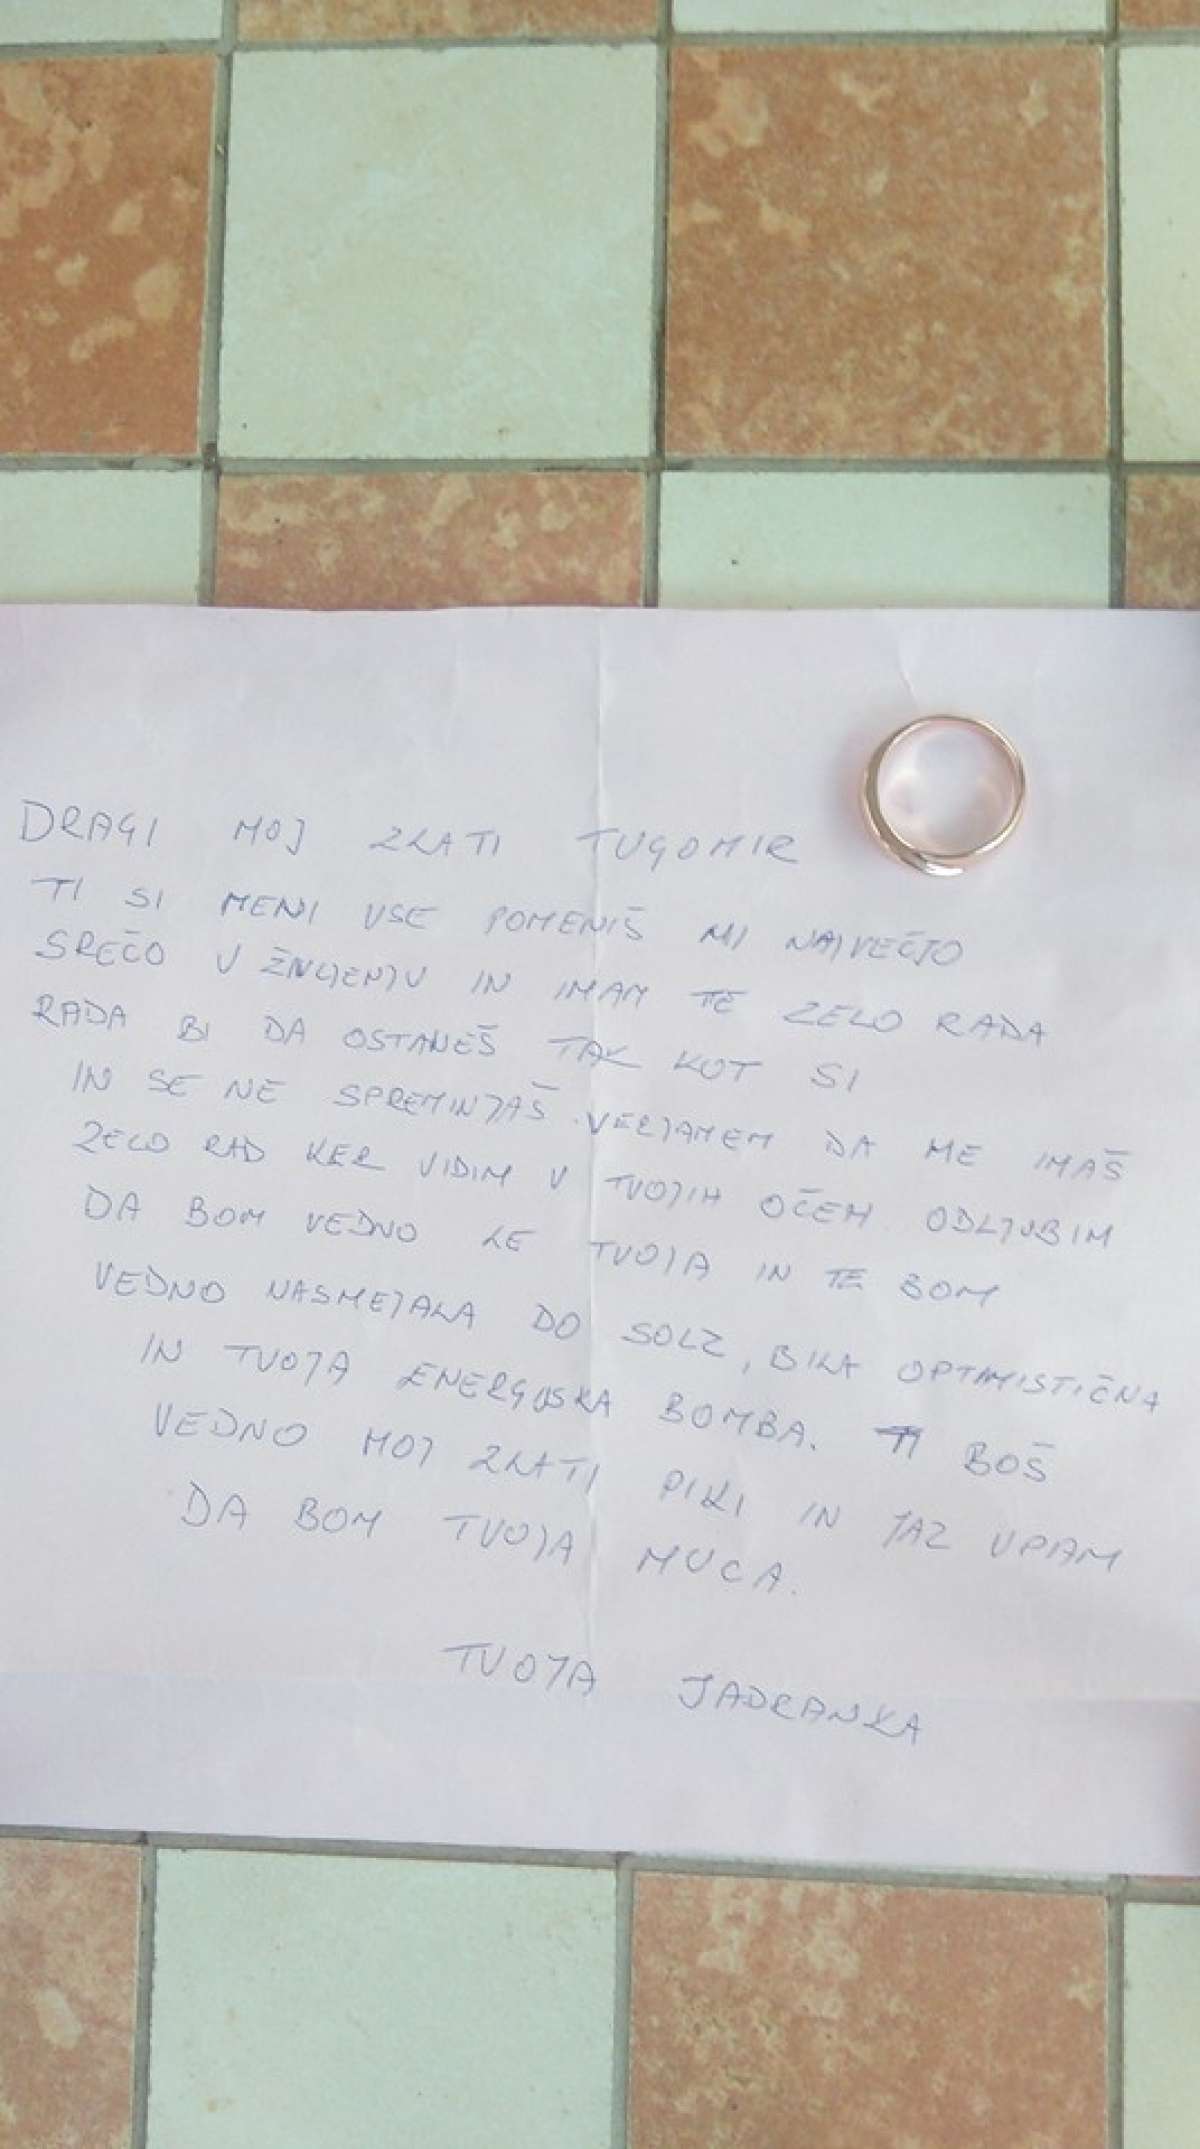 DRAGI MOJ ZLATI TUGOMIR
TI SI MENI VSE POMENIŠ MI NAJVEČJO
SREČO V ŽIVLJENJU IN IMAM TE ZELO RADA
RADA BI DA OSTANEŠ TAK KOT SI
IN SE NE SPREMINJAŠ. VERJAMEM DA ME IMAŠ
ZELO RAD KER VIDIM V TVOJIH OČEH. ODLJUBIM
DA BOM VEDNO LE TVOJA IN TE BOM
VEDNO NASMEJALA DO SOLZ, BILA OPTIMISTIČNA
IN TVOJA ENERGIJSKA BOMBA. TI BOŠ
VEDNO MOJ ZLATI PIKI IN JAZ UPAM
DA BOM TVOJA MUCA.
TVOJA JADRANKA